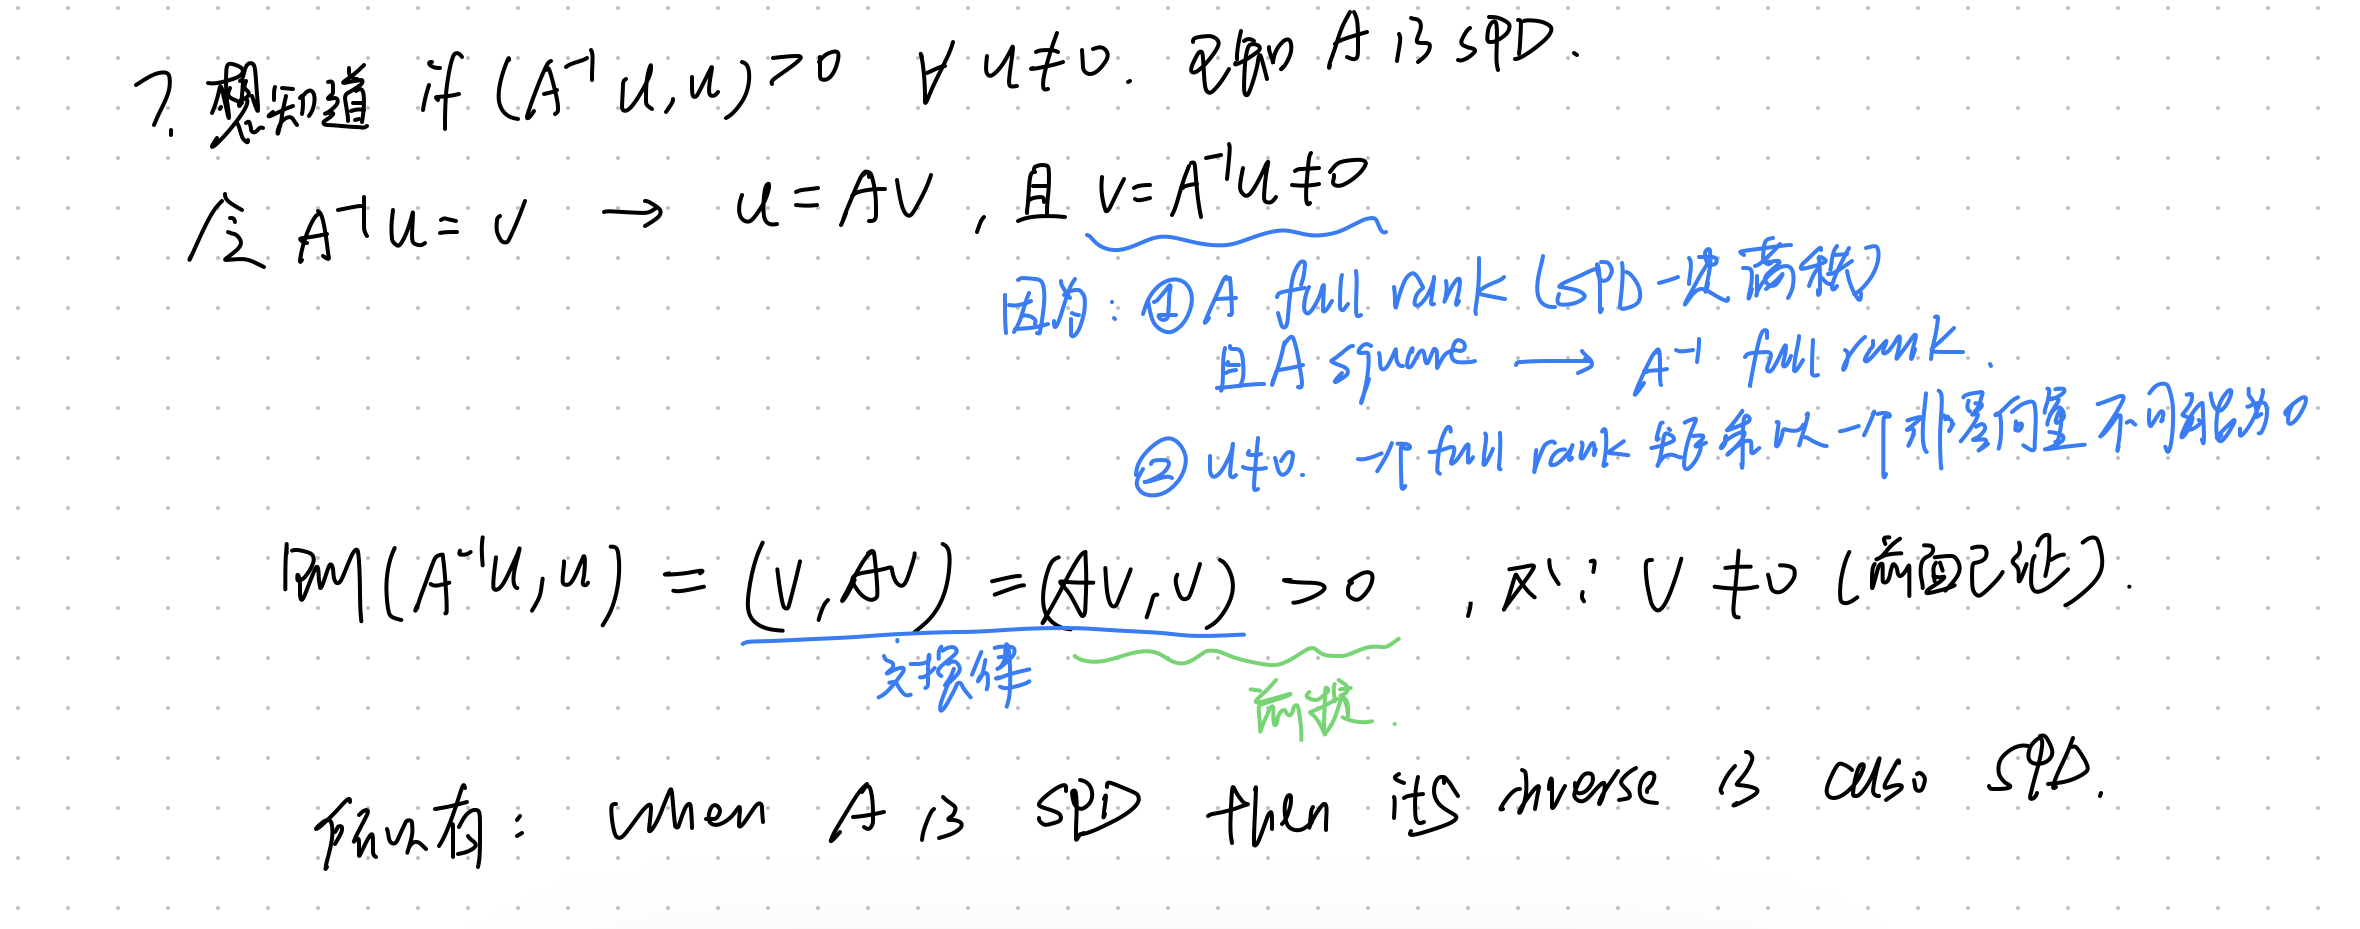 ？想知道 if (A⁻¹u, u) > 0 ∀ u ≠ 0. 已知 A is SPD.
令 A⁻¹u = v → u = Av , 且 v = A⁻¹u ≠ 0
因为: ① A full rank (SPD一定满秩)
且 A square → A⁻¹ full rank.
② u≠0. 一个 full rank 矩阵乘以一个非零向量不可能为0
则 (A⁻¹u, u) = (v, Av) = (Av, v) > 0 , 又∵ v ≠ 0 (前面已证).
交换律
前提.
所以有: when A is SPD then its inverse is also SPD.